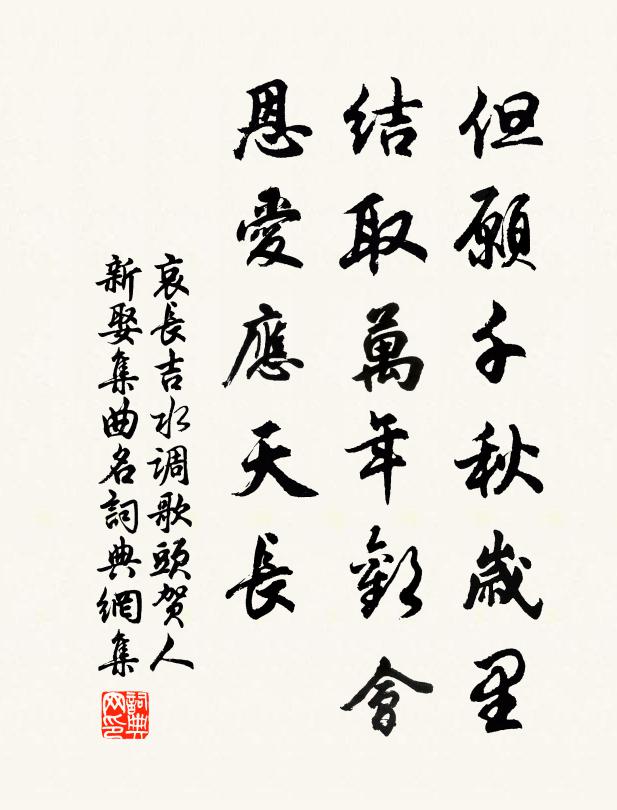 但願千秋歲里
結取萬年歡會
恩愛應天長
哀長吉水调歌頭贺人
新娶集曲名詞典網集
詞典
网印